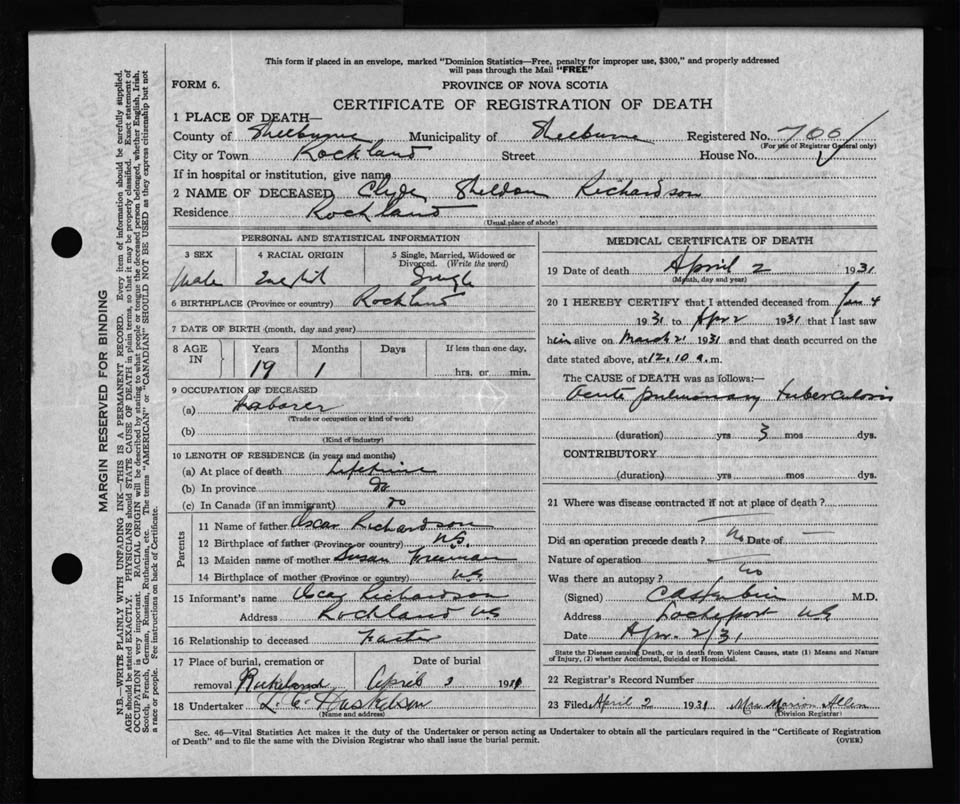 This form if placed in an envelope, marked "Dominion Statistics—Free, penalty for improper use, $300," and properly addressed
will pass through the Mail "FREE"
FORM 6.
PROVINCE OF NOVA SCOTIA
CERTIFICATE OF REGISTRATION OF DEATH
1 PLACE OF DEATH—
County of Shelburne Municipality of Shelburne Registered No. 706
(For use of Registrar General only)
City or Town Rockland Street House No.
If in hospital or institution, give name
2 NAME OF DECEASED Clyde Sheldon Richardson
Residence Rockland
(Usual place of abode)
PERSONAL AND STATISTICAL INFORMATION
3 SEX 4 RACIAL ORIGIN 5 Single, Married, Widowed or
Divorced. (Write the word)
Male English Single
6 BIRTHPLACE (Province or country) Rockland
7 DATE OF BIRTH (month, day and year)
8 AGE IN Years Months Days If less than one day,
19 1 hrs. or min.
9 OCCUPATION OF DECEASED
(a) Laborer
(Trade or occupation or kind of work)
(b)
(Kind of industry)
10 LENGTH OF RESIDENCE (in years and months)
(a) At place of death Lifetime
(b) In province do
(c) In Canada (if an immigrant) do
Parents
11 Name of father Oscar Richardson
12 Birthplace of father (Province or country) N.S.
13 Maiden name of mother Susan Freeman
14 Birthplace of mother (Province or country) N.S.
15 Informant's name Oscar Richardson
Address Rockland N.S
16 Relationship to deceased Father
17 Place of burial, cremation or Date of burial
removal Rockland April 3 1931
18 Undertaker
(Name and address)
MEDICAL CERTIFICATE OF DEATH
19 Date of death April 2 1931
(Month, day and year)
20 I HEREBY CERTIFY that I attended deceased from Jan 4
1931 to Apr 2 1931 that I last saw
him alive on March 21 1931 and that death occurred on the
date stated above, at 12.10 a.m.
The CAUSE of DEATH was as follows:—
Acute pulmonary tuberculosis
(duration) yrs 3 mos dys.
CONTRIBUTORY
(duration) yrs mos dys.
21 Where was disease contracted if not at place of death?
—
Did an operation precede death? No Date of —
Nature of operation —
Was there an autopsy? no
(Signed) M.D.
Address Lockeport N.S
Date Apr. 2/31
State the Disease causing Death, or in death from Violent Causes, state (1) Means and Nature
of Injury, (2) whether Accidental, Suicidal or Homicidal.
22 Registrar's Record Number
23 Filed April 2 1931 Mrs Marion Allen
(Division Registrar)
Sec. 46—Vital Statistics Act makes it the duty of the Undertaker or person acting as Undertaker to obtain all the particulars required in the "Certificate of Registration
of Death" and to file the same with the Division Registrar who shall issue the burial permit. (OVER)
MARGIN RESERVED FOR BINDING
N.B.—WRITE PLAINLY WITH UNFADING INK—THIS IS A PERMANENT RECORD. Every item of information should be carefully supplied.
AGE should be stated EXACTLY. PHYSICIANS should STATE CAUSE OF DEATH in plain terms, so that it may be properly classified. Exact statement of
OCCUPATION is very important. RACIAL ORIGIN will be described by stating to what people or tongue the deceased person belonged, whether English, Irish,
Scotch, French, German, Russian, Ruthenian, etc. The terms "AMERICAN" or "CANADIAN" SHOULD NOT BE USED as they express citizenship but not
a race or people. See instructions on back of Certificate.